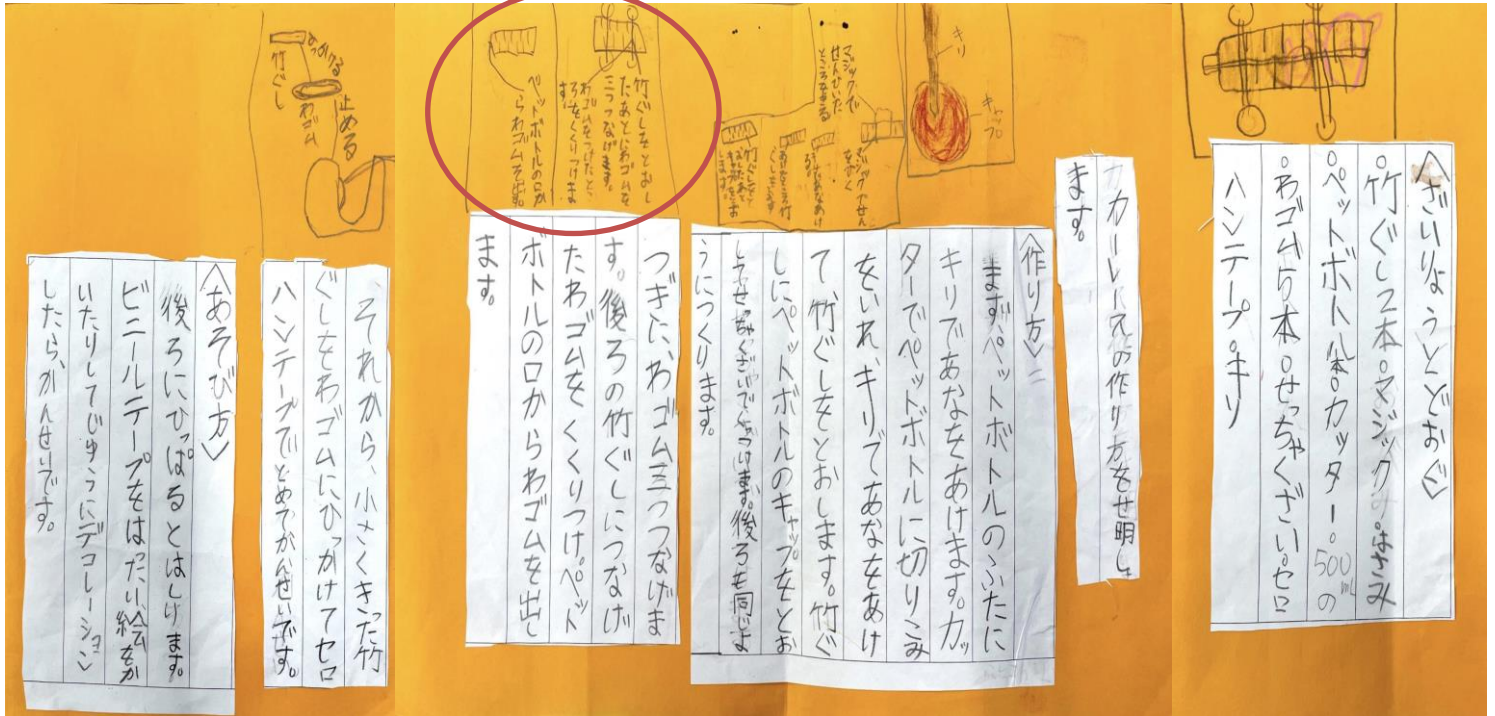 〈ざいりょうとどおぐ〉
○竹ぐし2本○マジック○はさみ
○ペットボトル1本○カッター○500mLの
○わゴム5本○せっちゃくざい○セロ
ハンテープ○キリ
の作り方をせ明し
ます。
キリ
キャップ
マジックで
せんひいた
ところをきる
マジックでせん
をかく
〈作り方〉
まず、ペットボトルのふたに
キリであなをあけます。カッ
ターでペットボトルに切りこみ
をいれ、キリであなをあけ
て、竹ぐしをとおします。竹ぐ
しにペットボトルのキャップをとお
してせっちゃくざいでくっつけます。後ろも同じよ
うにつくります。
竹ぐしをとおし
たあとにわゴムを
三つつなげます。
わゴムをつけたとこ
ろをくくりつけま
す。
ペットボトルの口か
らわゴムを出す。
つぎに、わゴム三つつなげま
す。後ろの竹ぐしにつなげ
たわゴムをくくりつけ、ペット
ボトルの口からわゴムを出し
ます。
止める
わゴム
ひっかける
竹ぐし
それから、小さくきった竹
ぐしをわゴムにひっかけてセロ
ハンテープでとめてかんせいです。
〈あそび方〉
後ろにひっぱるとはしります。
ビニールテープをはったり、絵をか
いたりしてじゆうにデコレーション
したら、かんせいです。